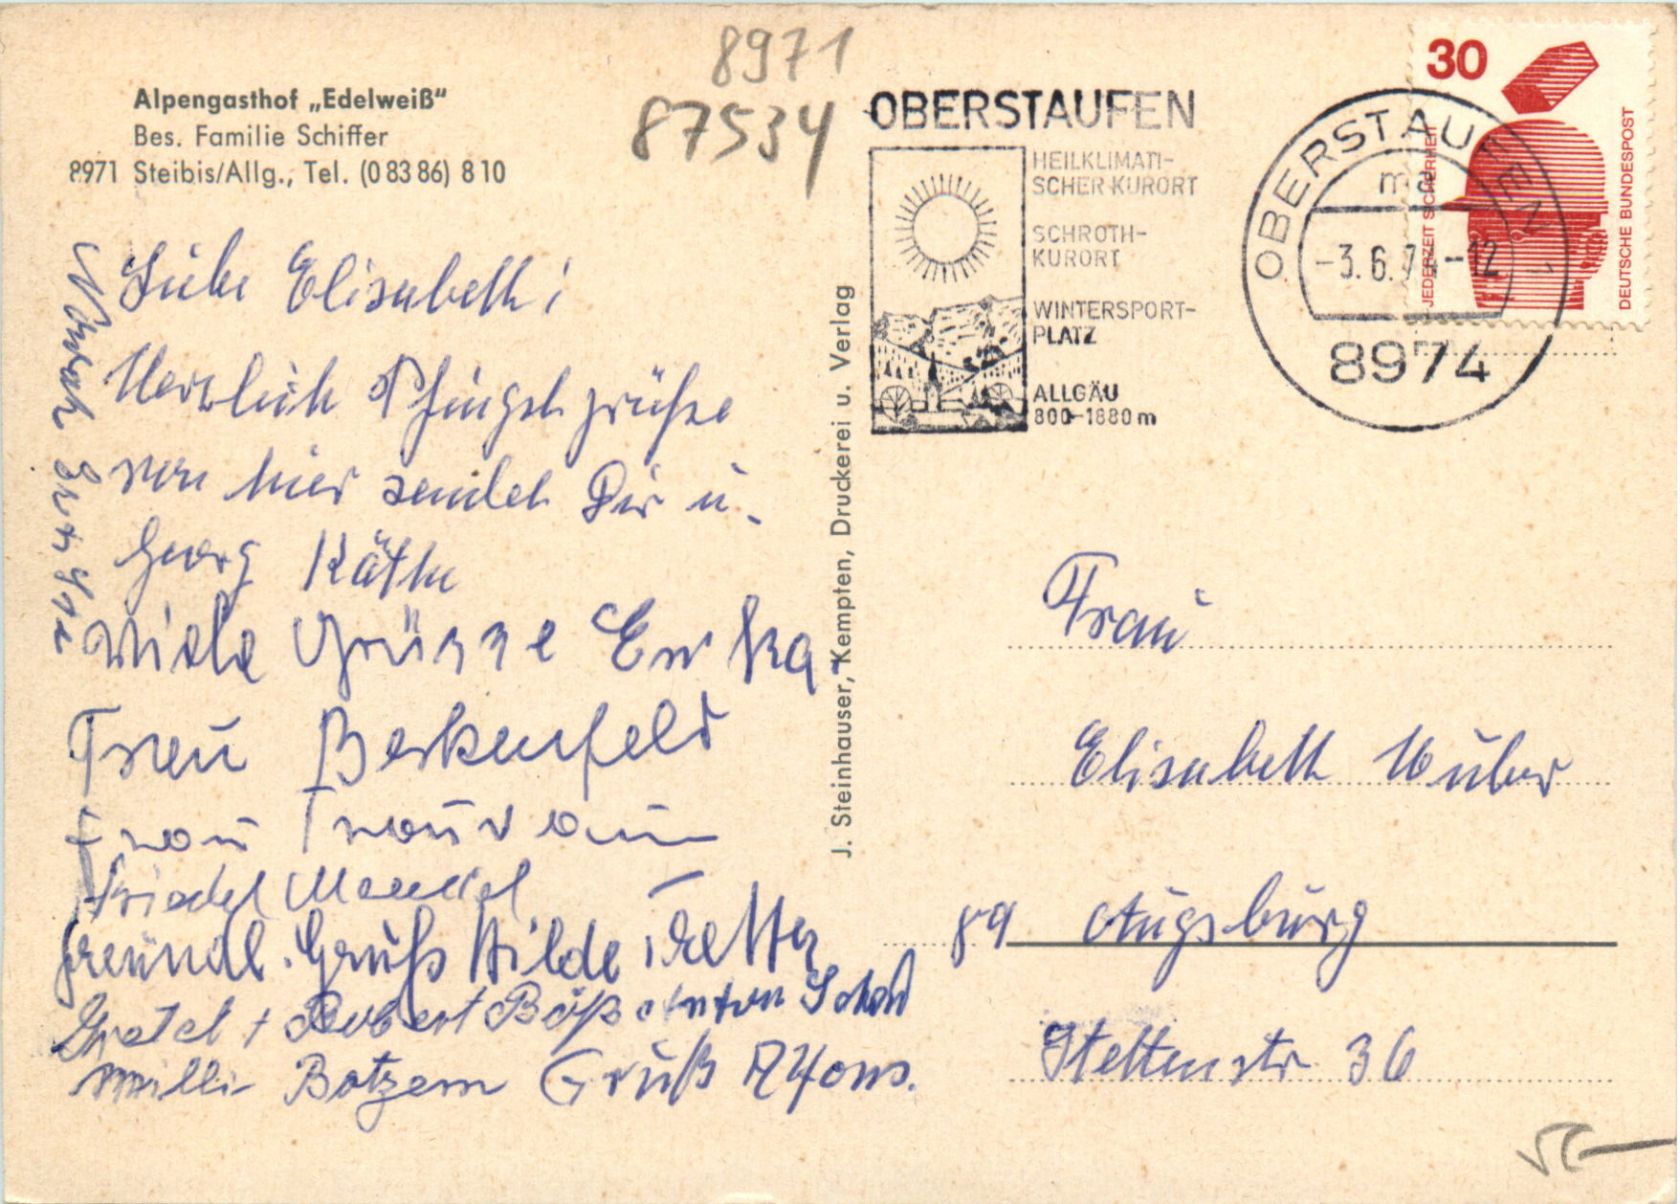 8971
87534
Alpengasthof „Edelweiß"
Bes. Familie Schiffer
8971 Steibis/Allg., Tel. (0 83 86) 8 10
Liebe Elisabeth!
Herzlich Pfingstgrüße
von hier sendet Dir u.
Georg Käthe
Viele Grüsse
Frau Berkenfeld
Frau
Friedel
freundl. Gruß Hilde
Gretel + Robert Böß Anton
Milli Botzem Gruß Alfons.
J. Steinhauser, Kempten, Druckerei u. Verlag
OBERSTAUFEN
HEILKLIMATI-
SCHER KURORT
SCHROTH-
KURORT
WINTERSPORT-
PLATZ
ALLGÄU
800-1880 m
OBERSTAUFEN
ma
-3.6.74-12
8974
30
JEDERZEIT SICHERHEIT
DEUTSCHE BUNDESPOST
Frau
Elisabeth Huber
89 Augsburg
Stettenstr 36